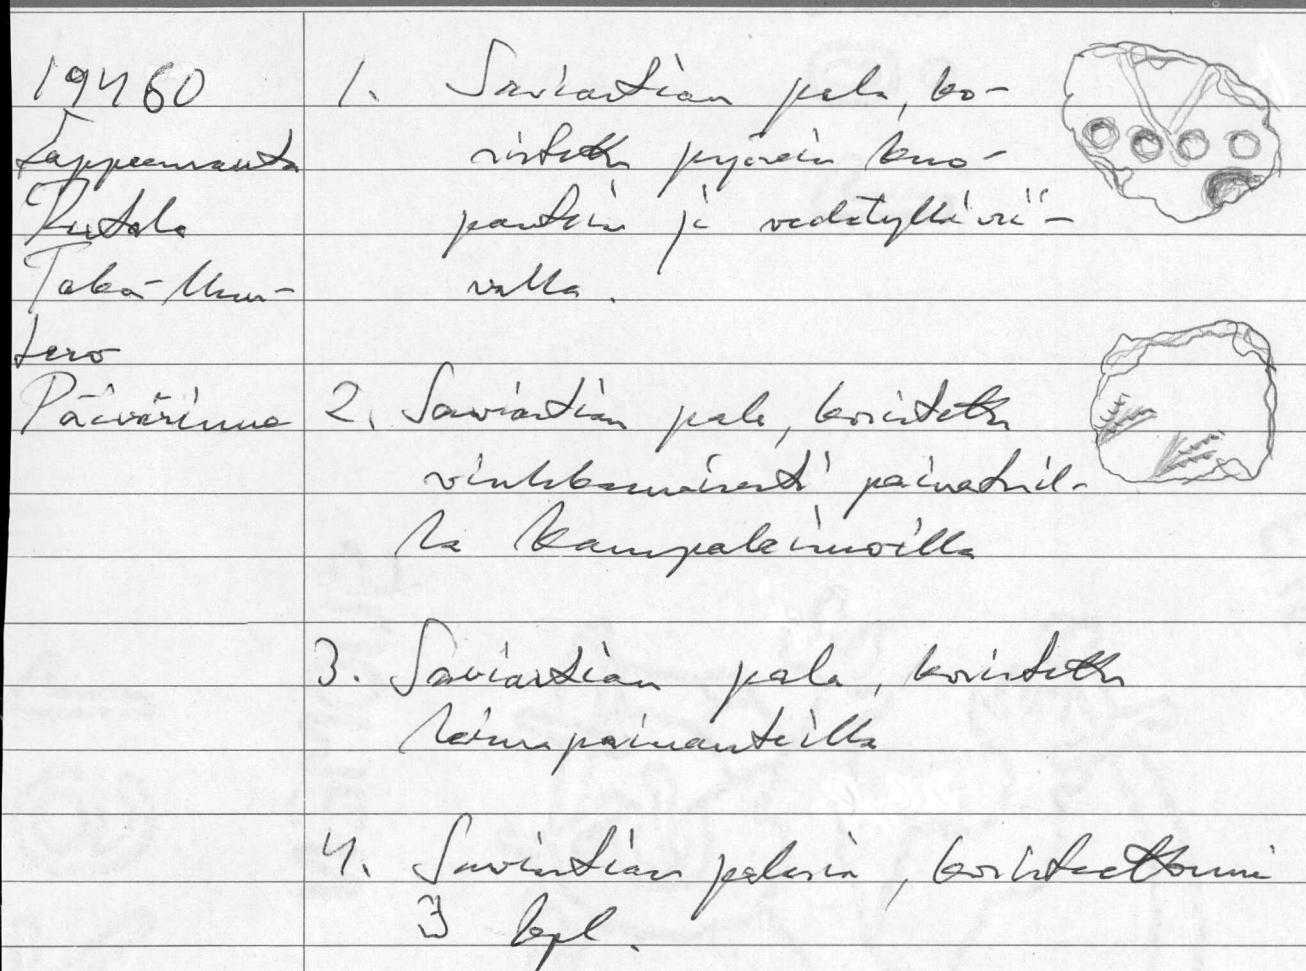 19460
Lappeenranta
Rutola
Taka-Mun-
tero
Päivärinne
1. Saviastian pala, ko-
ristettu pyörein kuo-
pantein ja vedetyllä vii-
valla.
2. Saviastian pala, koristettu
vinkkamaisesti painetuil-
la kampaleimoilla
3. Saviastian pala, koristettu
leimapainanteilla
4. Saviastian paloja, koristeettomia
3 kpl.